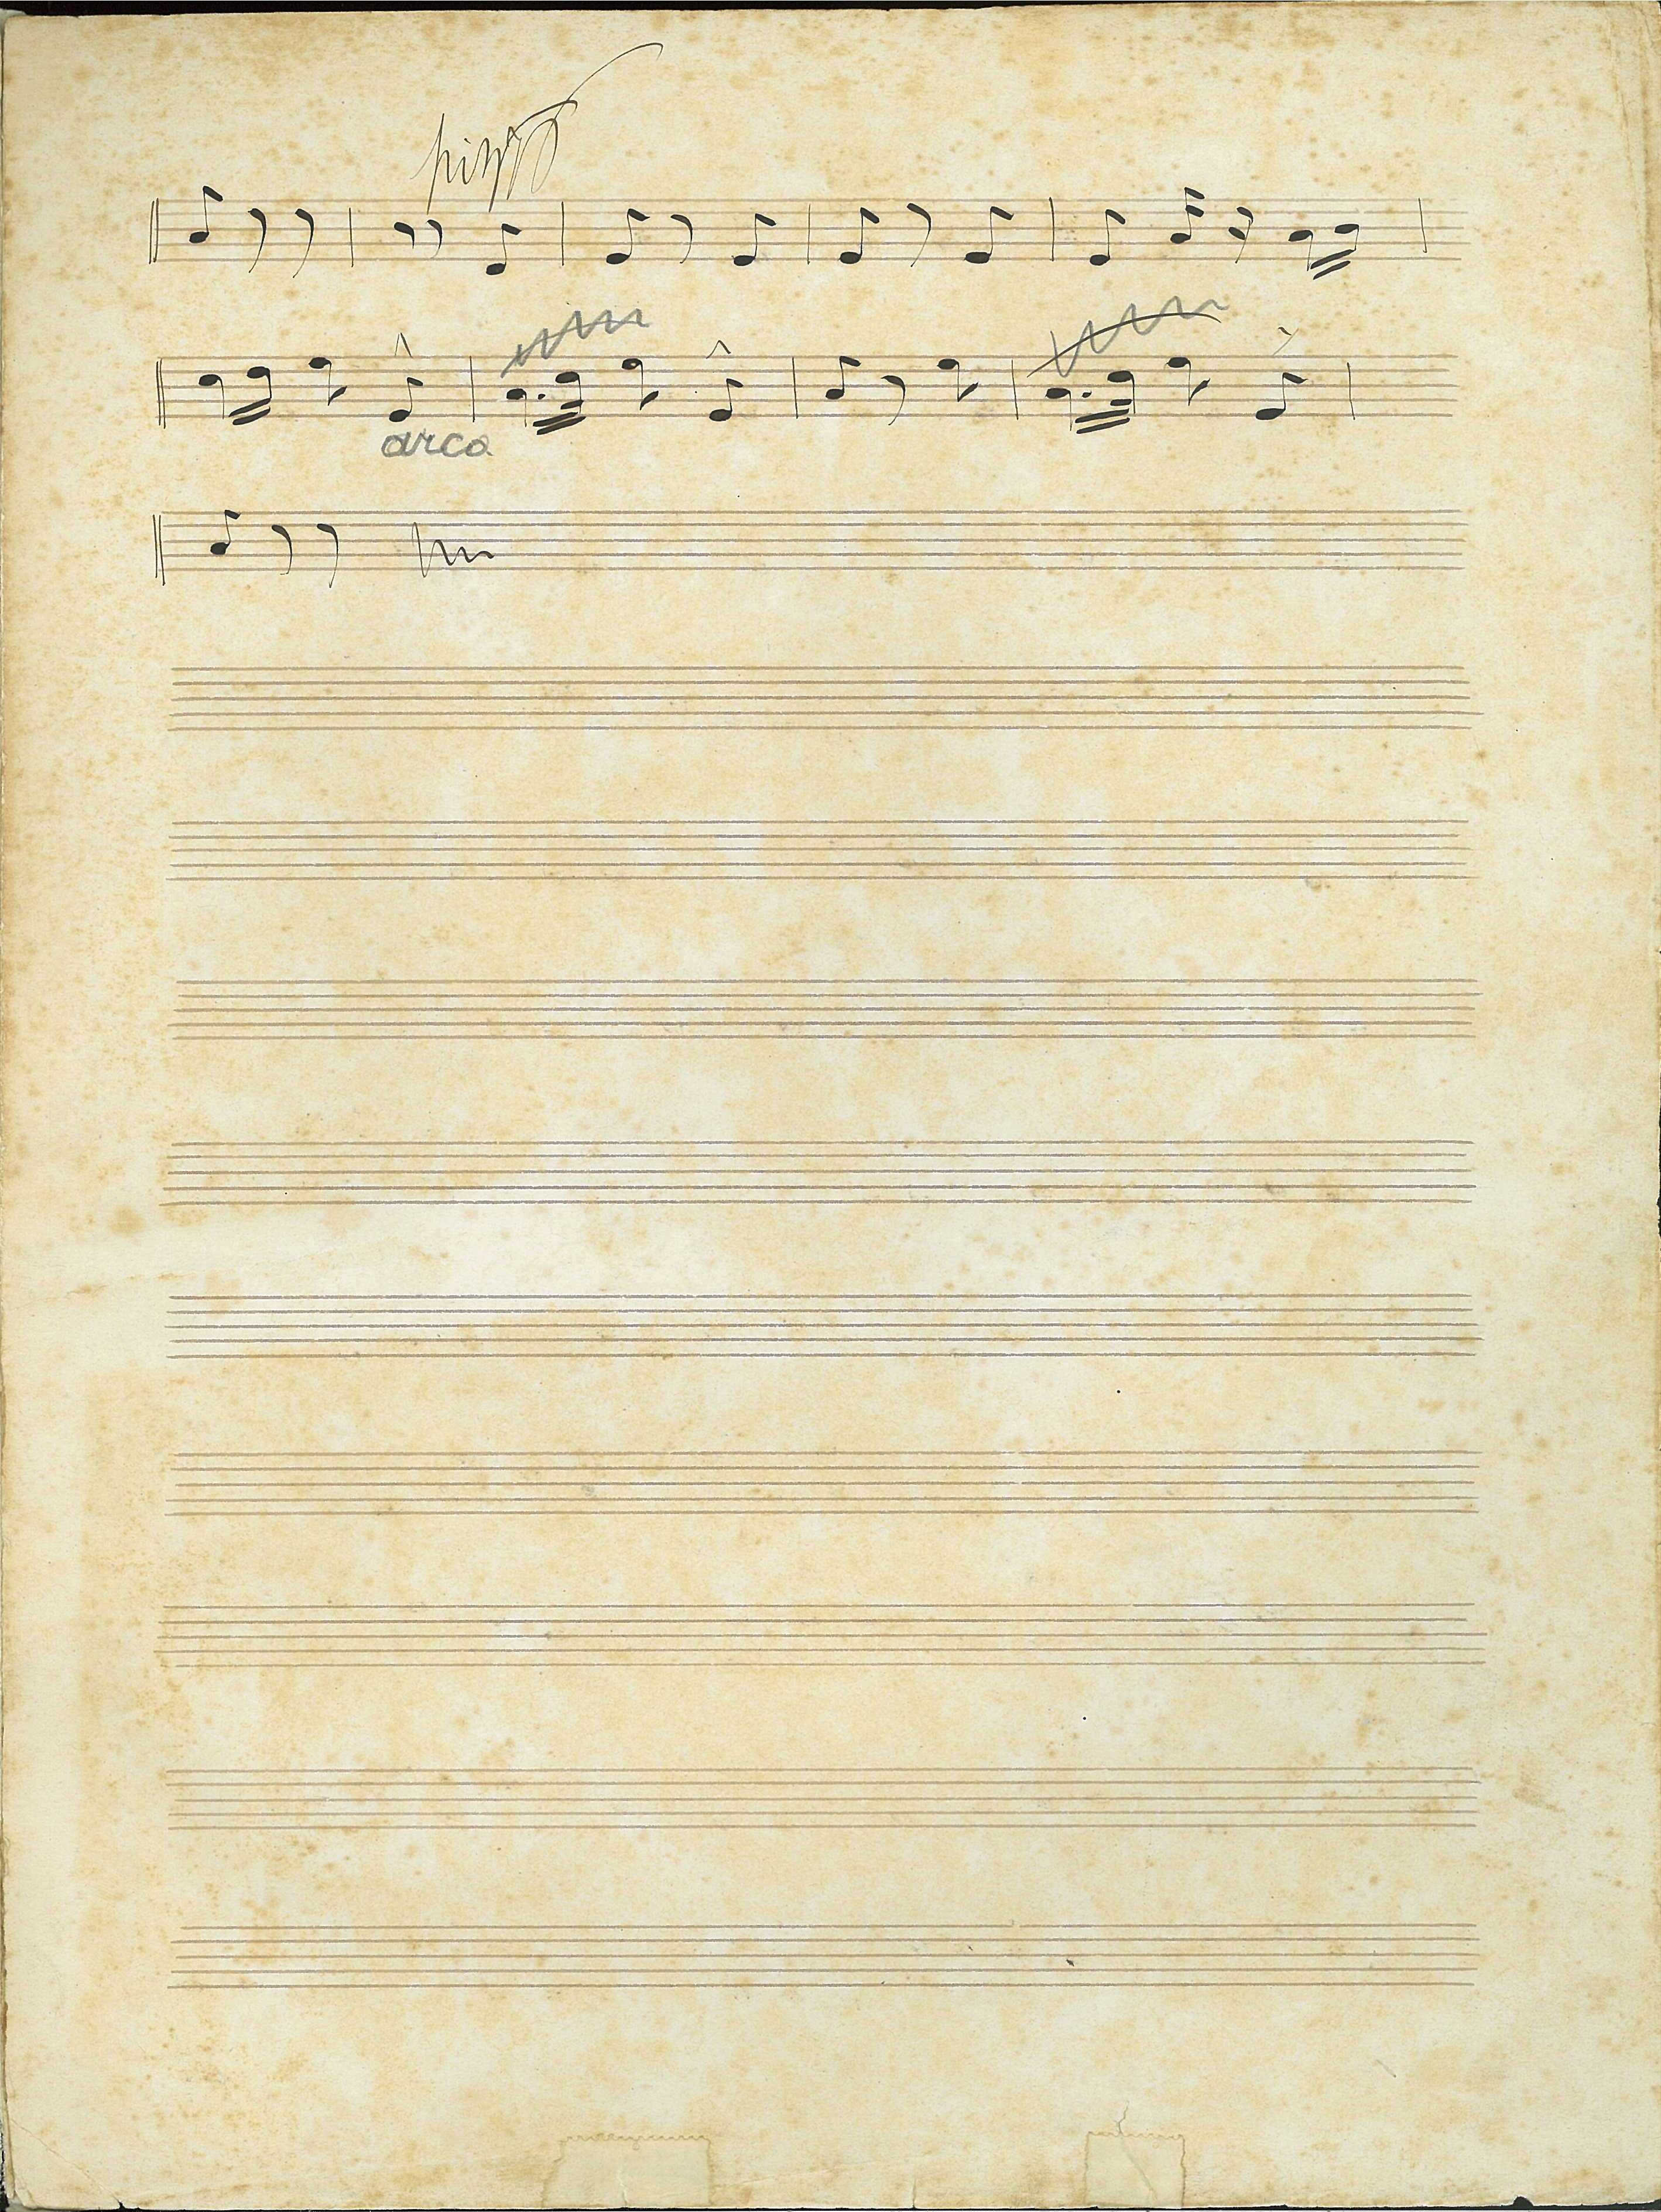 pizz
arco